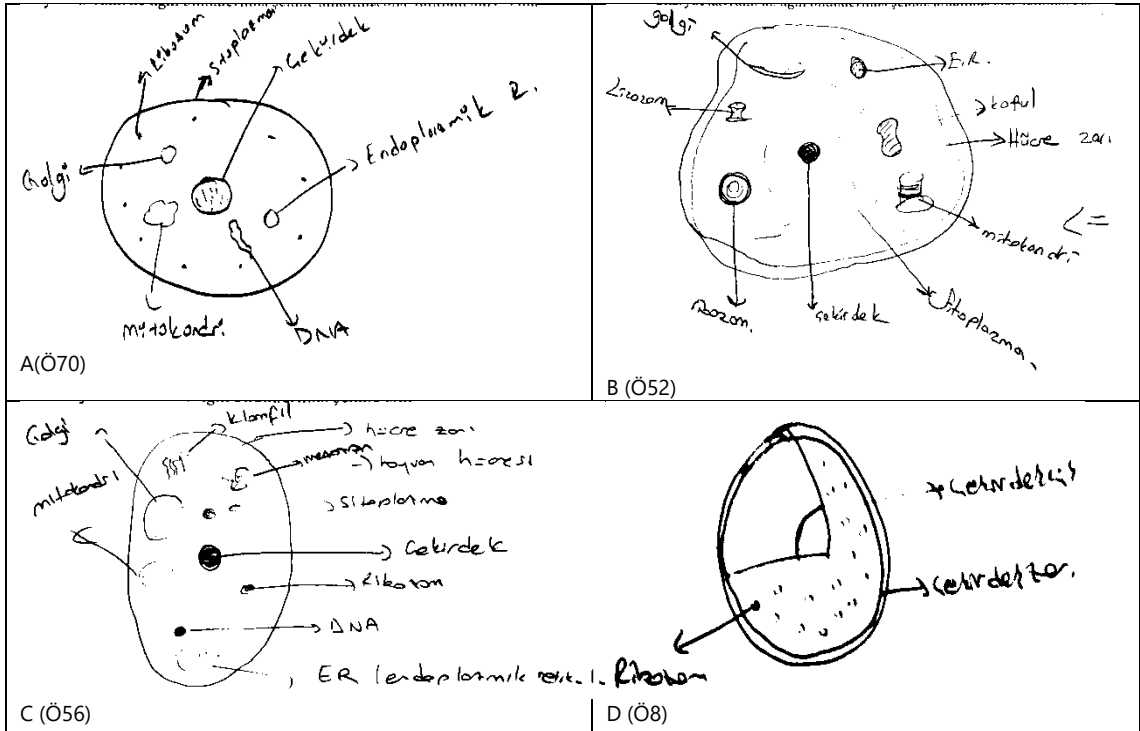 Ribozom
Sitoplazma
Çekirdek
Endoplazmik R.
Golgi
mitokondri
DNA
A(Ö70)
golgi
E.R.
Lizozom
koful
Hücre zarı
mitokondri
Ribozom.
çekirdek
Sitoplazma
B (Ö52)
Golgi
Klorofil
hücre zarı
hayvan hücresi
mitokondri
Sitoplazma
Çekirdek
Ribozom
DNA
ER (endoplazmik
C (Ö56)
Çekirdekçik
Çekirdek zarı
Ribozom
D (Ö8)